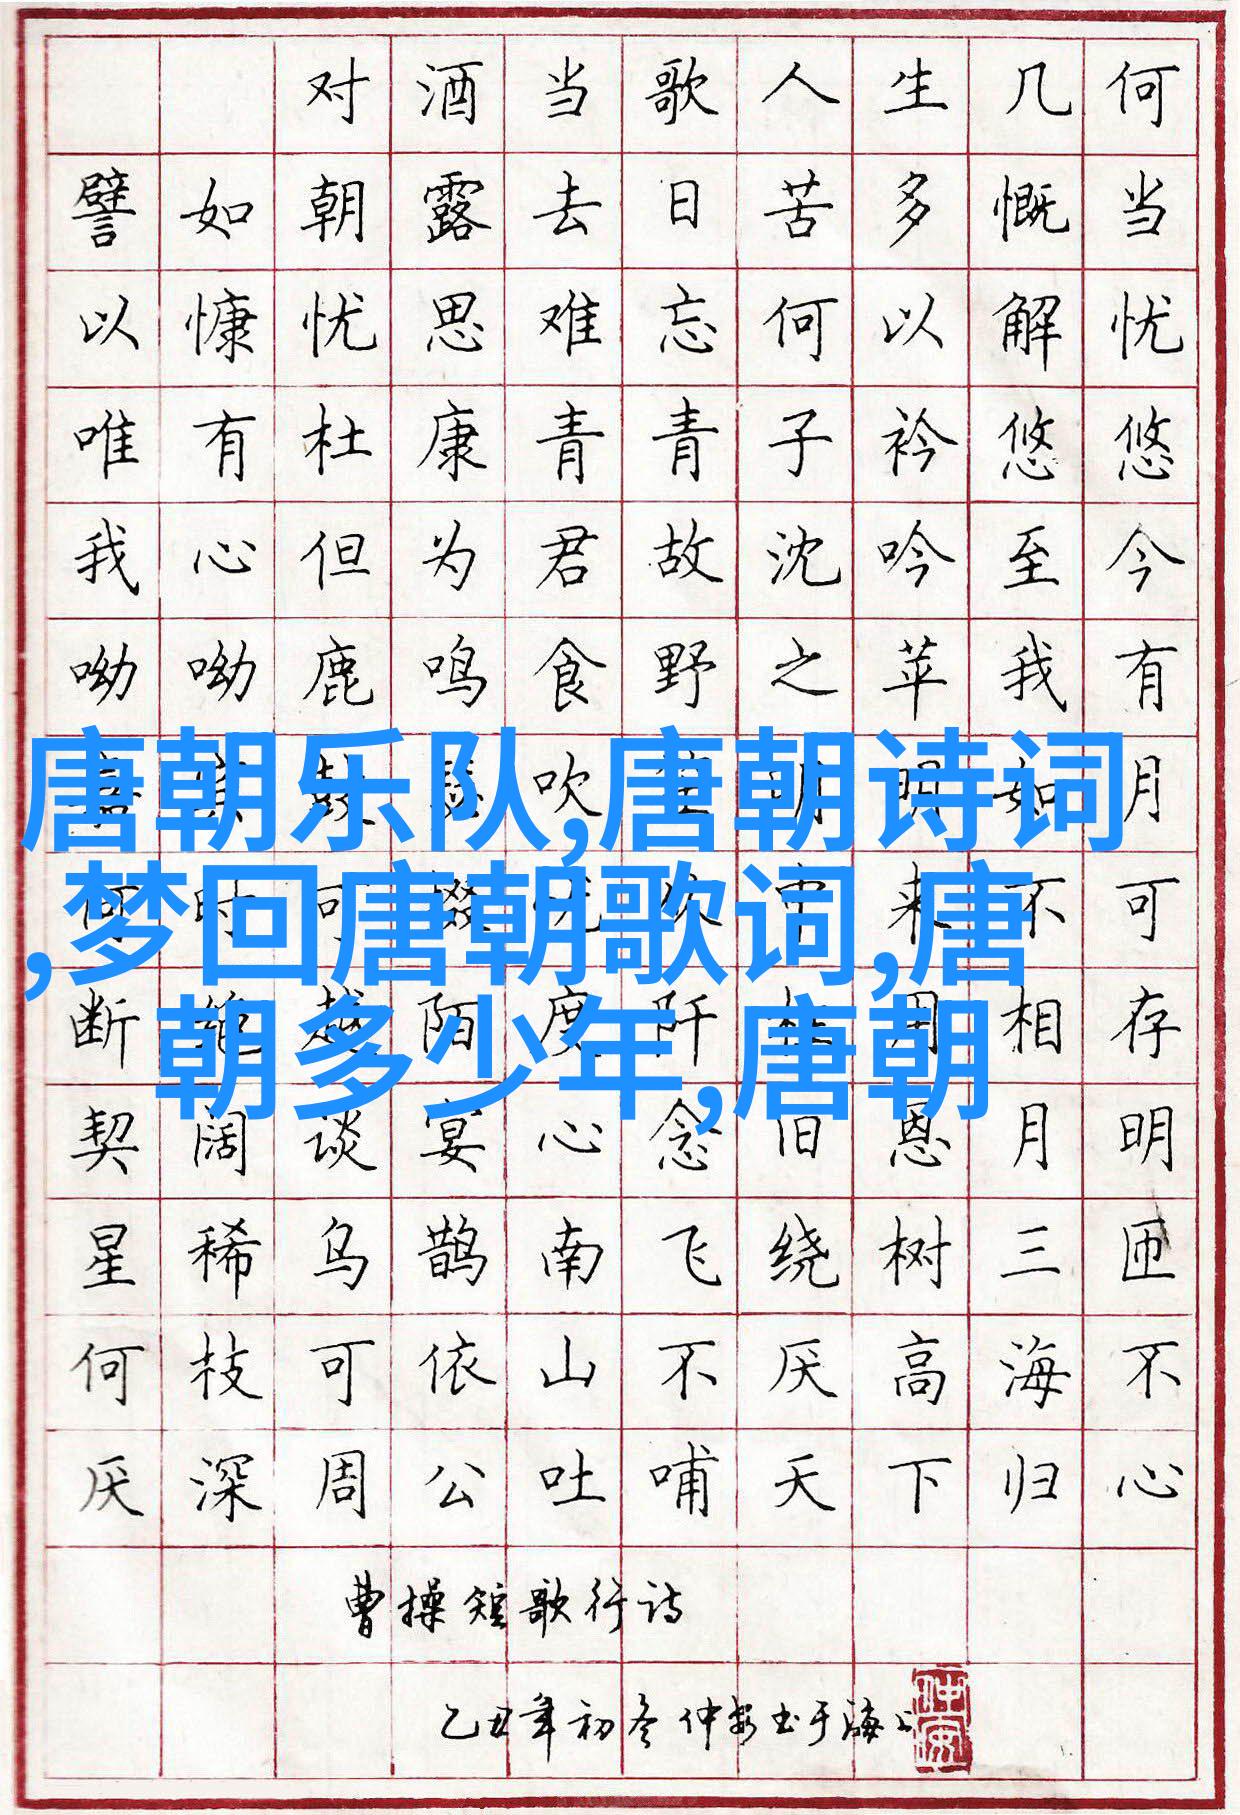 对酒当歌人生几何
譬如朝露去日苦多慨当
以慷忧思难忘何以解忧
唯有杜康青青子衿悠悠
我心但为君故沈吟至今
呦呦鹿鸣食野之苹我有
唐朝乐队,唐朝诗词
,梦回唐朝歌词,唐
朝多少年,唐朝
鼓瑟吹明明如月
时可掇中来不可
断绝越陌度阡用相存
契阔谈宴心念旧恩月明
星稀乌鹊南飞绕树三匝
何枝可依山不厌高海不
厌深周公吐哺天下归心
曹操短歌行诗
乙丑年初冬仲安书于海上
仲安